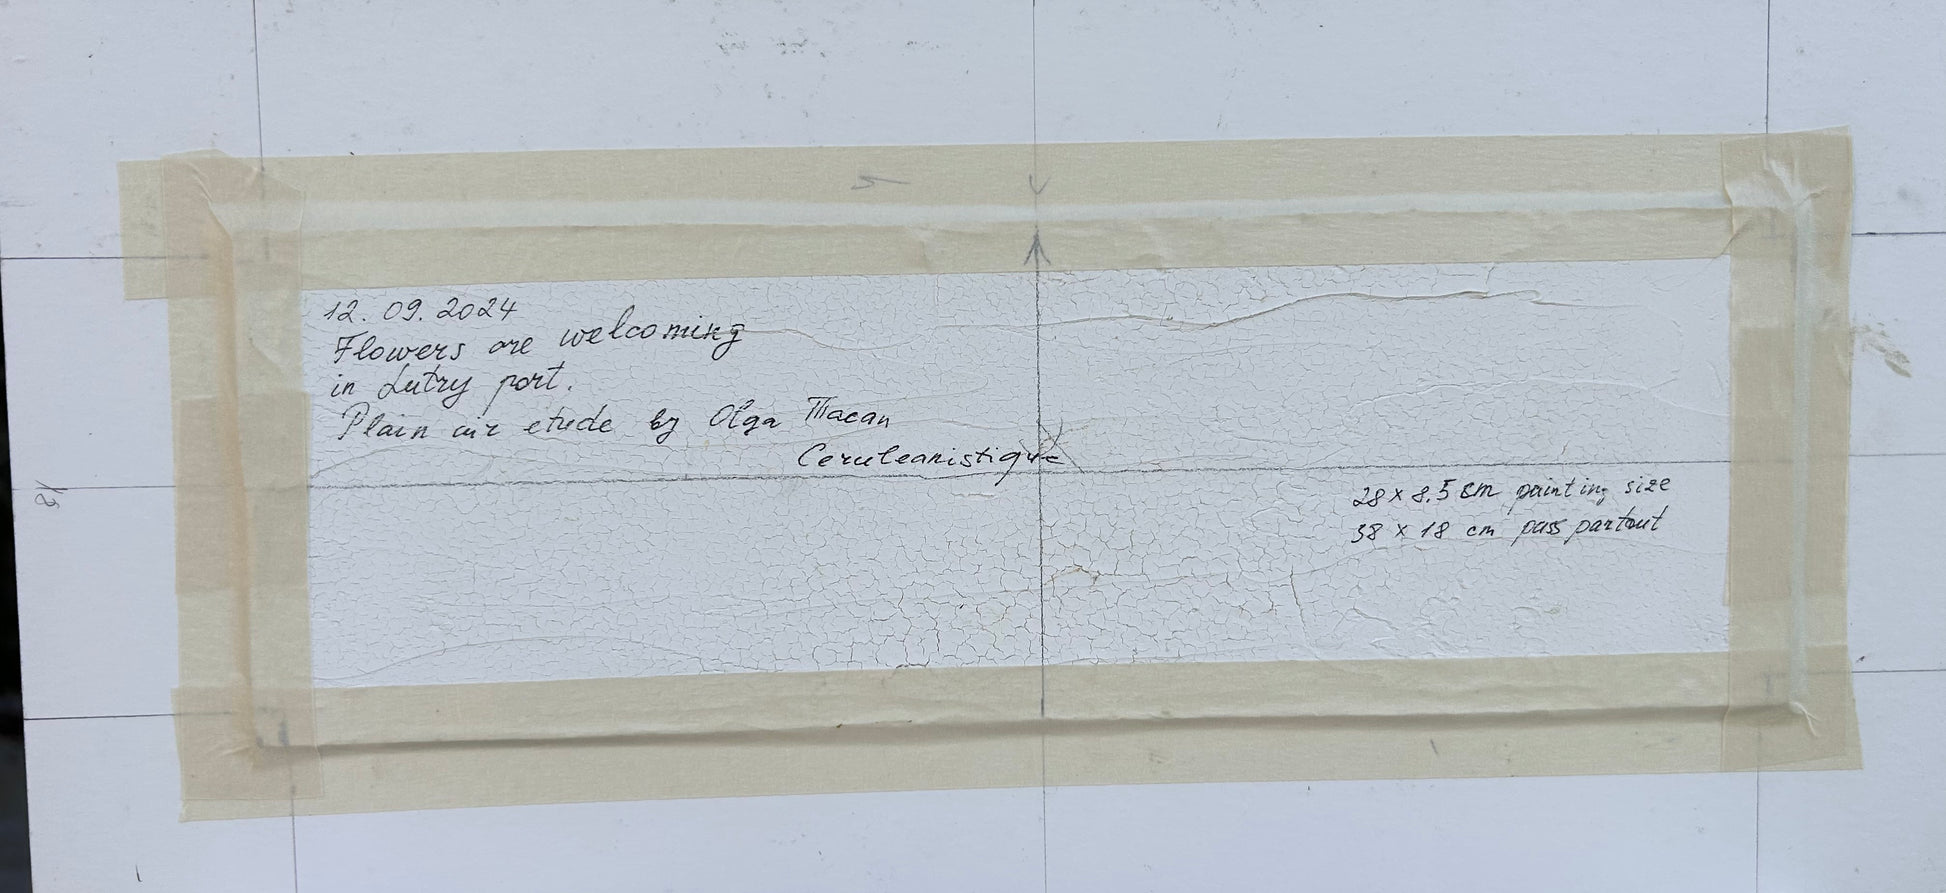 12.09.2024
Flowers are welcoming
in Lutry port.
Plain air etude by Olga Macan
Ceruleanistique
28 x 8.5 cm painting size
38 x 18 cm pass partout
18